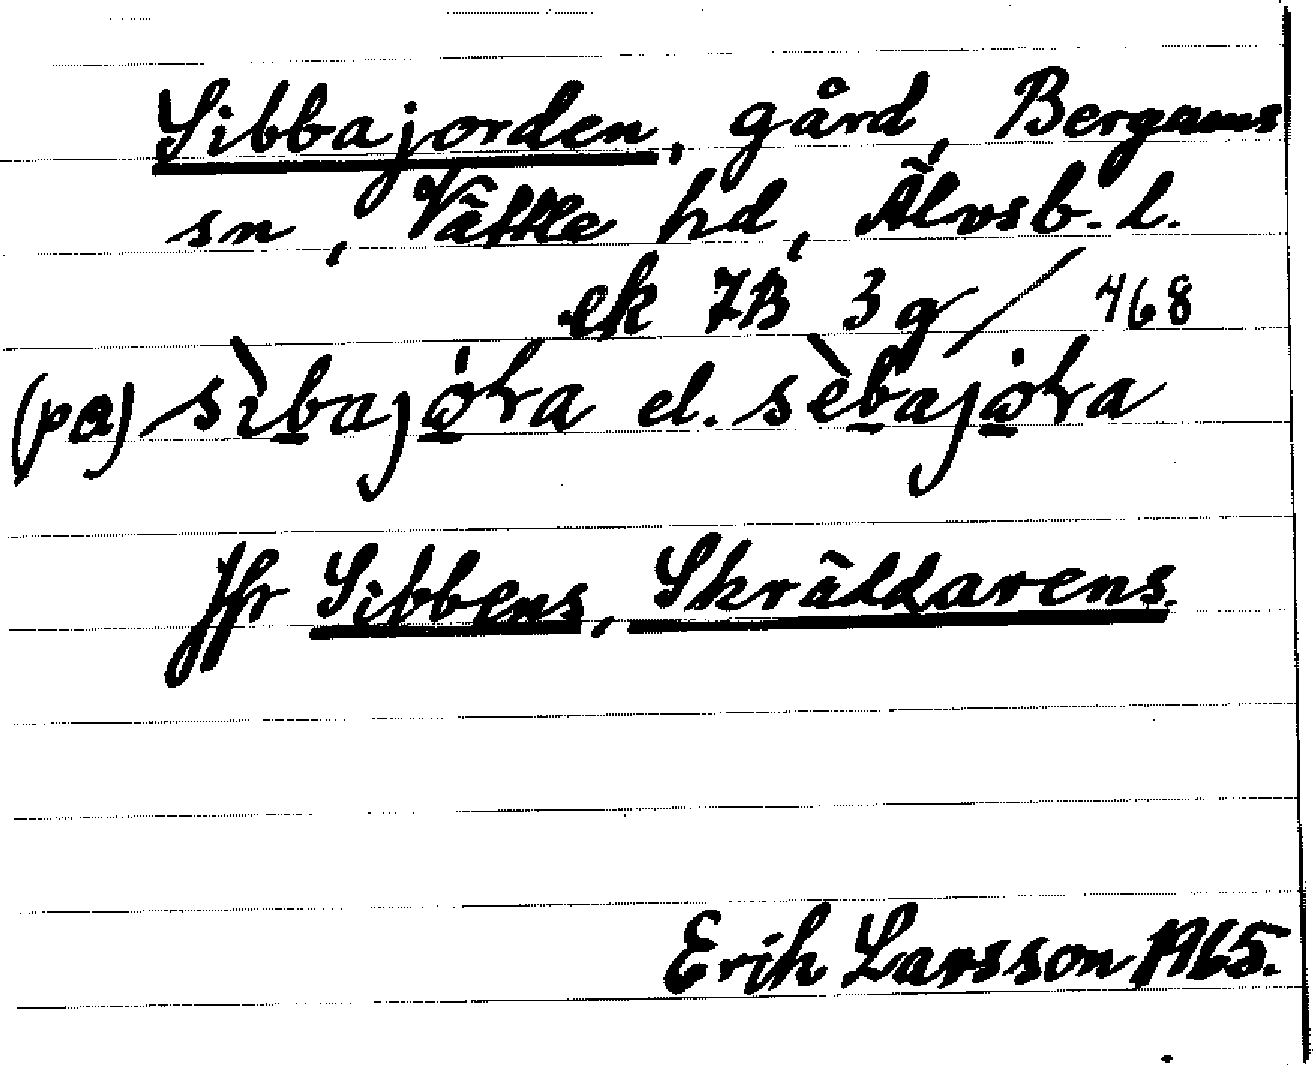 Sibbajorden, gård, Bergums
sn, Vättle hd, Älvsb. l.
ek 7B 3g/468
(pa) sìbajo̱ra el. sèbajo̱ra
Jfr Sibbens, Skräddarens.
Erik Larsson 1965.